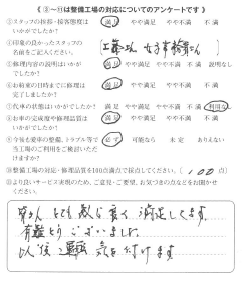 《 ③~⑪は整備工場の対応についてのアンケートです 》
③スタッフの挨拶・接客態度は 満足 やや満足 やや不満 不満
いかがでしたか?
④印象の良かったスタッフの
名前をご記入ください。
⑤修理内容の説明はいかが 満足 やや満足 やや不満 不満
でしたか?
⑥お約束の日時までに修理は 満足 やや満足 やや不満 不満
完了しましたか?
⑦代車の状態はいかがでしたか? 満足 やや満足 やや不満 不満 利用なし
⑧お車の完成度や修理品質は 満足 やや満足 やや不満 不満
いかがでしたか?
⑨今後も愛車の整備、トラブル等で 必ず 可能なら 未定 ありえない
当工場のご利用をご検討いただ
けますか?
⑩整備工場の対応・修理品質を100点満点で採点してください。( 100 点)
⑪より良いサービス実現のため、ご意見・ご要望、お気づきの点などをお聞かせ
ください。
皆さん とても感じ良く 満足してます。
有難とうございました。
以後 運転 気を付けます